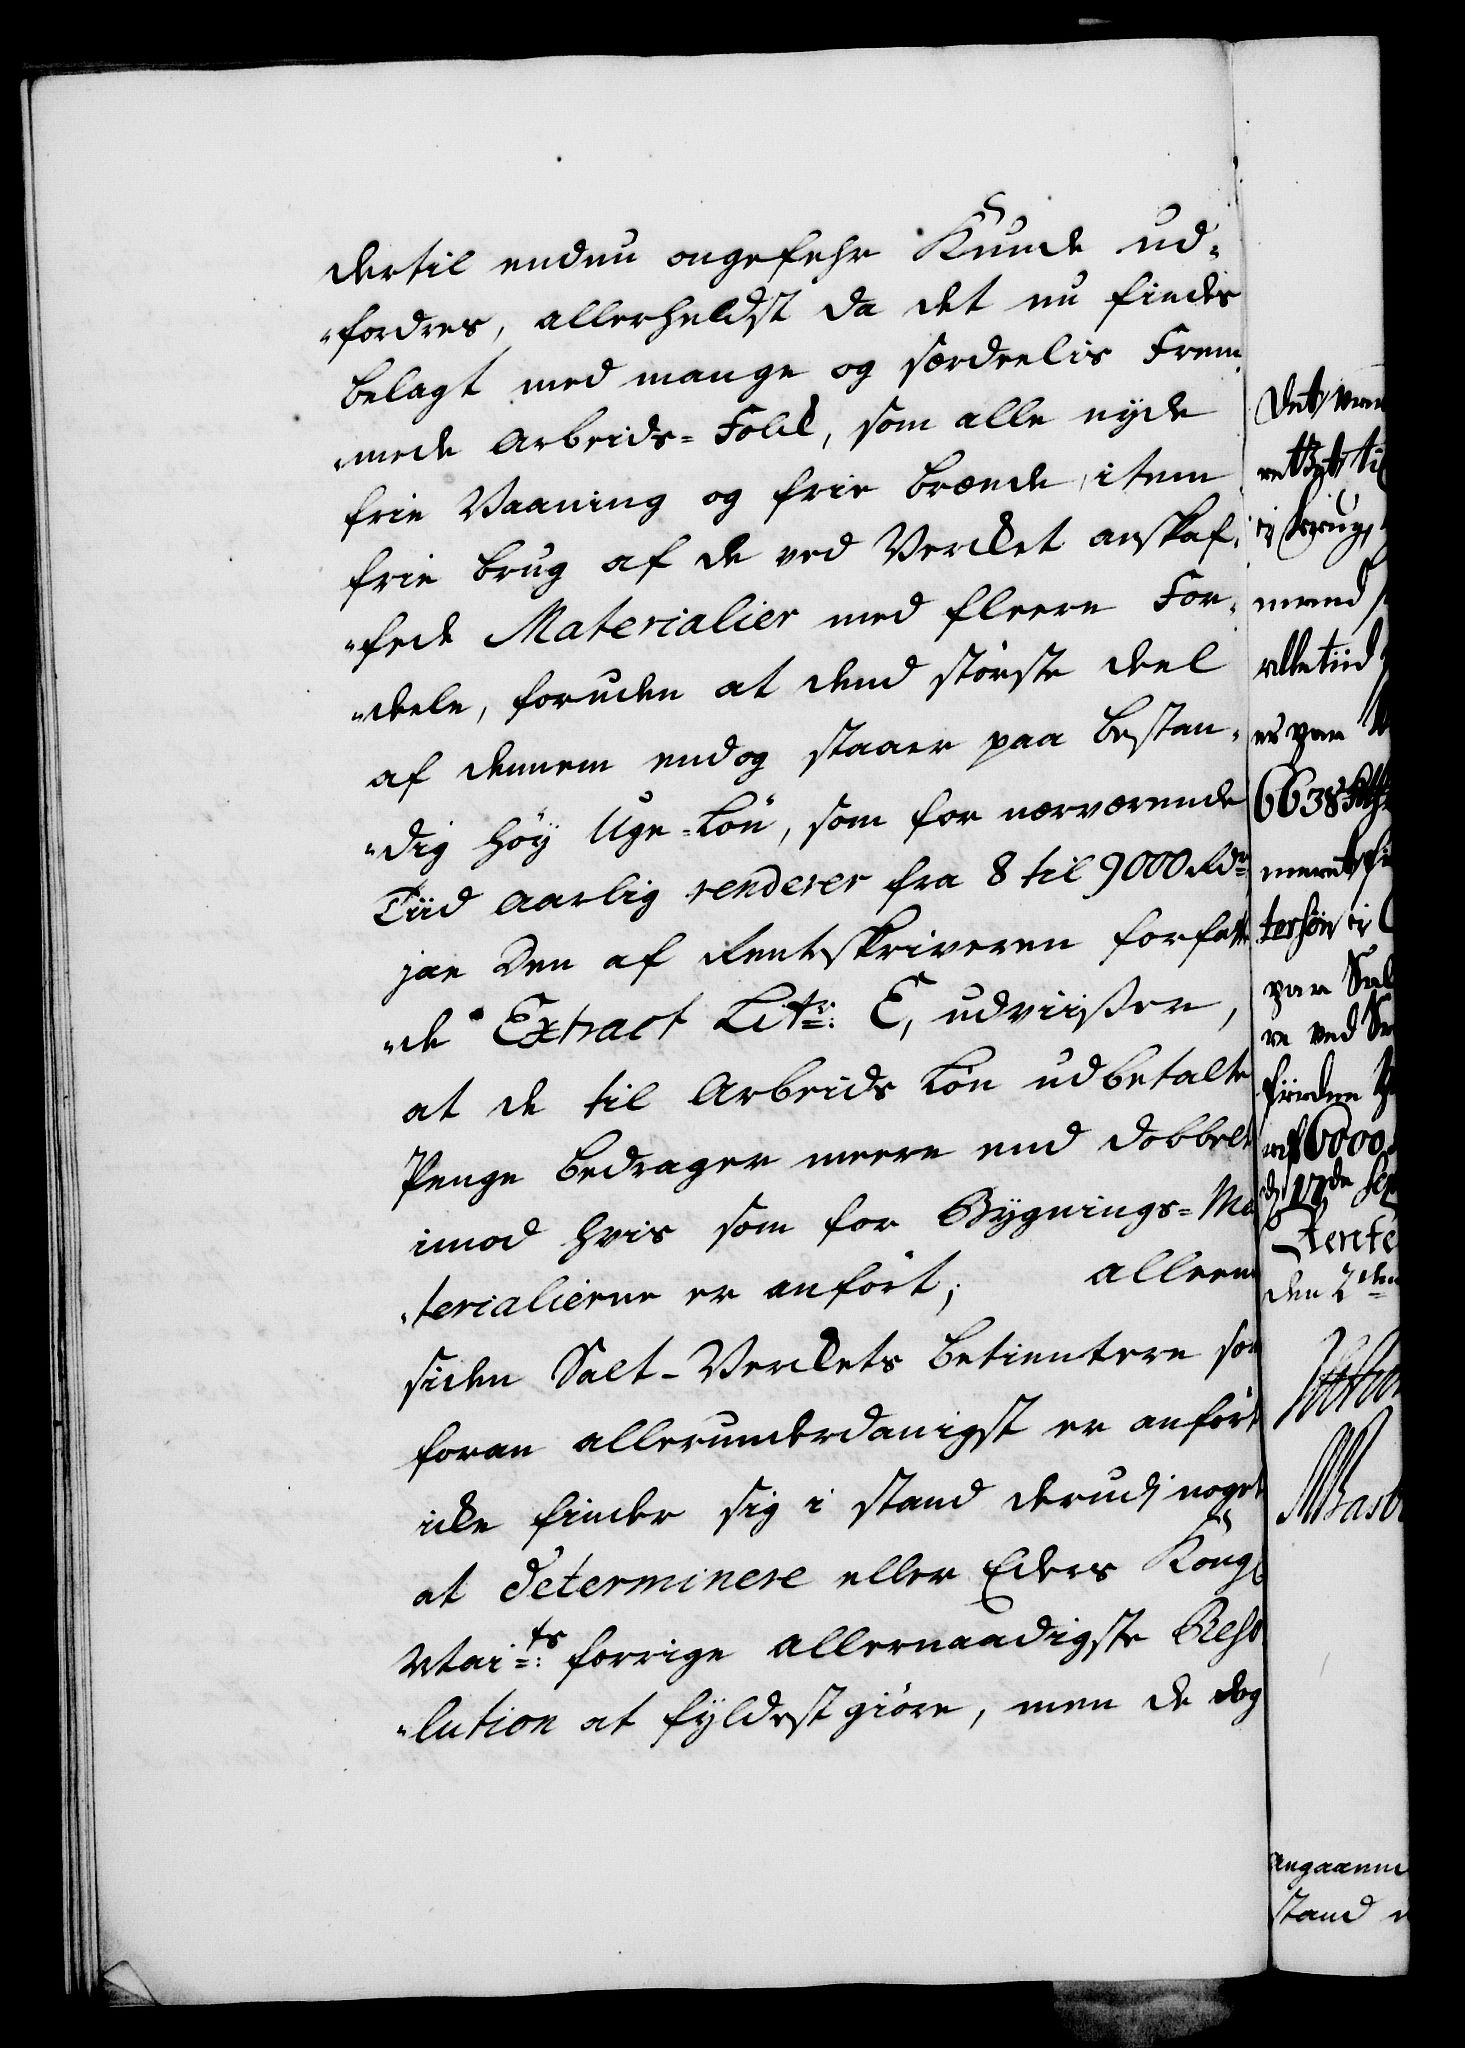 dertil endnu ongefehr Kunde ud-
"fordres, allerheldst da det nu findes
belagt med mange og særdeelis Frem-
"mede Arbeids-Folck, som alle nyde
frie Vaaning og frie brænde, item
frie brug af de ved Vercket anskaf-
"fede Materialier med fleere For-
"deele, foruden at dend største deel
af dennem endog staaer paa bestan-
"dig høÿ Uge-Løn, som for nærværende
Tiid aarlig renderer fra 8 til 9000 Rdr
jae den af Rentskriveren forfatte
"de Extract Litr: E, udviiser,
at de til Arbeids Løn udbetalte
Penge bedrager meere end dobbelt
imod hvis som for Bygnings-Ma
"terialierne er anført; alleene
siden Salt-Verckets betientere som
foran allerunderdanigst er anført
icke finder sig i stand derudj noget
at determinere eller Eders Kongl
Maits: forrige allernaadigste Reso
"lution at fyldestgiøre, men de dog
6638
alletiid
6000
17de Sep
Rente
den 2den
angaaen
stand